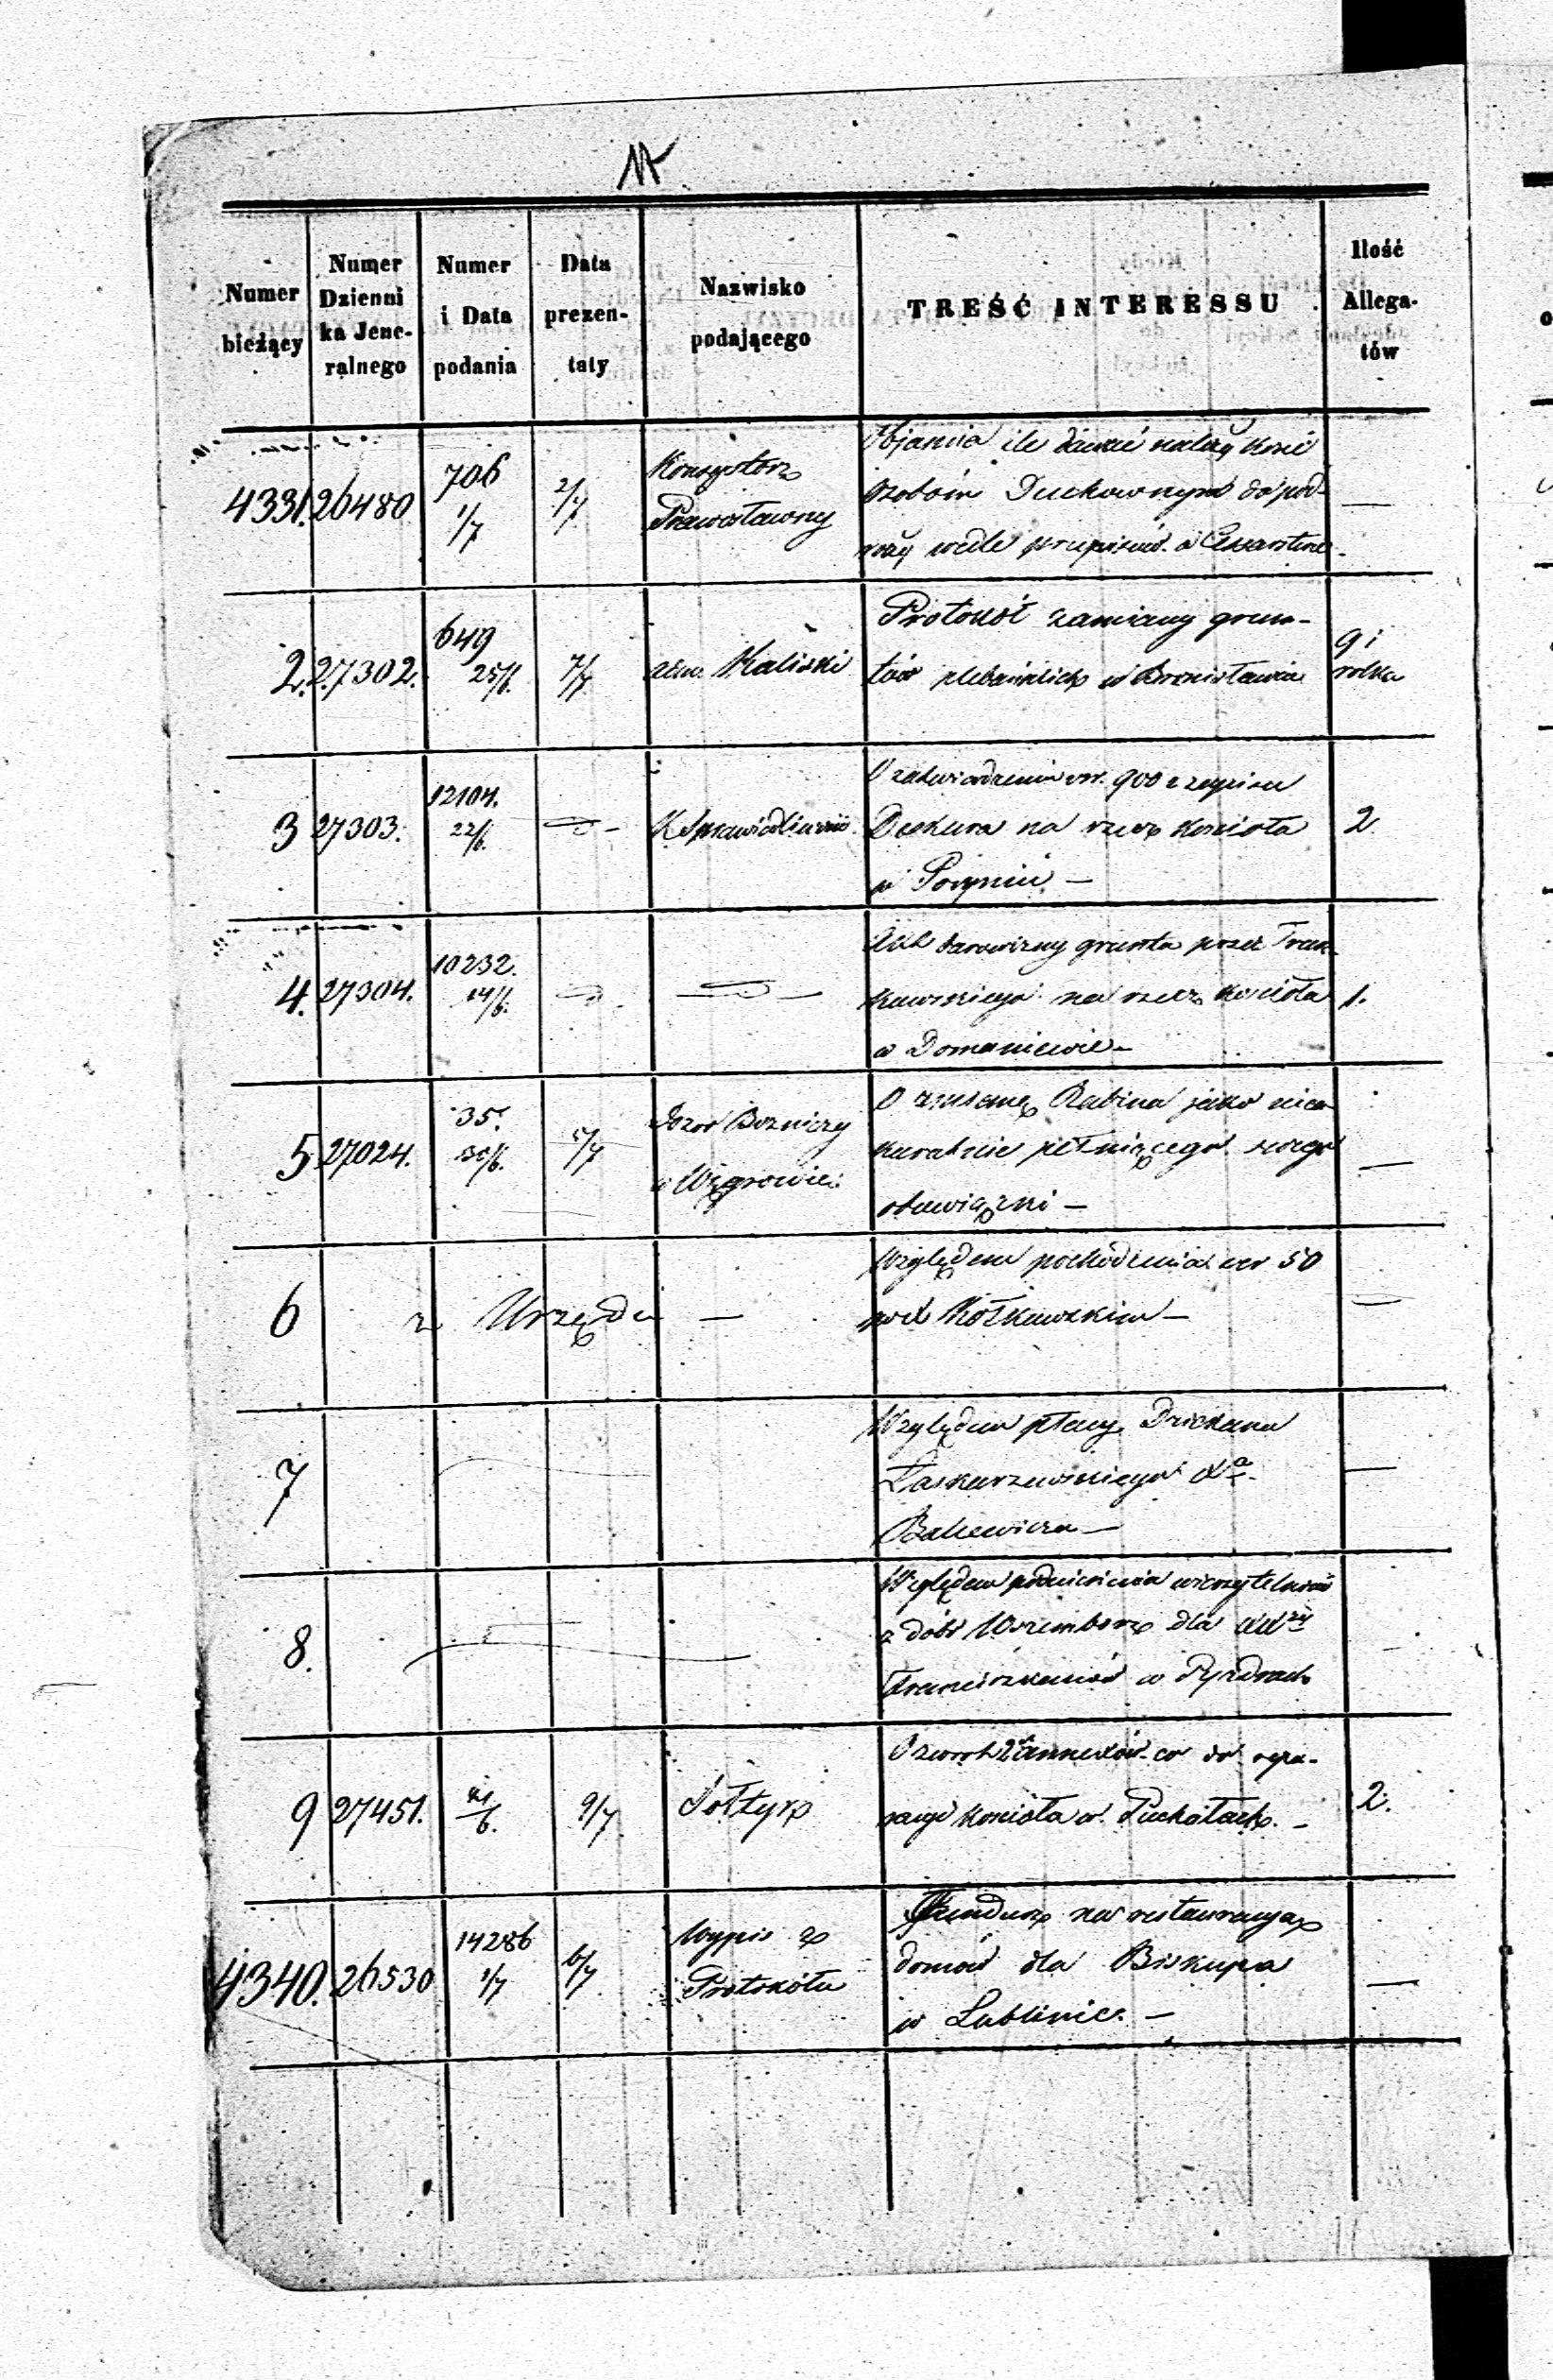 Numer bieżący
Numer Dzienni ka Jene- ralnego
Numer i Data podania
Data prezen- taty
Nazwisko podającego
TREŚĆ INTERESSU
Ilość Allega- tów
4331. 26480 706 1/7 2/7
Konsystorz
Prawosławny
Objawia ile dawać należy koni
osobom Duchownym do pod-
roży wedle przepisów w Cesarstwie —
2. 27302. 649 25/6. 7/7
Kaliski
Protokół zamiany grun-
tów plebańskich w Bronisławiu
9 i
rolka
3 27303. 12104. 22/6.
K. Sprawiedliwości
O zatwierdzenie rsr. 900 z zapisu
Deskura na rzecz kościoła
w
2.
4. 27304. 10232. 14/6.
Akt darowizny gruntu przez
na rzecz kościoła
w Domaniewie —
1.
5 27024. 35. 30/6. 5/7
Dozór Bozniczy
w Węgrowie
O Rabina jako nie
pełniącego swego
obowiązki —
6 z Urzędu —
Względem pochodzenia rsr 50
pod
7
Względem płacy Dziekana
Łaskarzewskiego Xa
8.
Względem wierzytelności
z dóbr dla
Franciszkanów w Pyzdrach
9 27451. 21/6. 9/7
Sołtyk
O zwrot 2 Annexów co do repa-
racyi kościoła w Puchałach. —
2.
4340. 26530 14286 1/7 6/7
Wypis z
Protokółu
Fundusz na restauracyą
domów dla Biskupa
w Lublinie. —